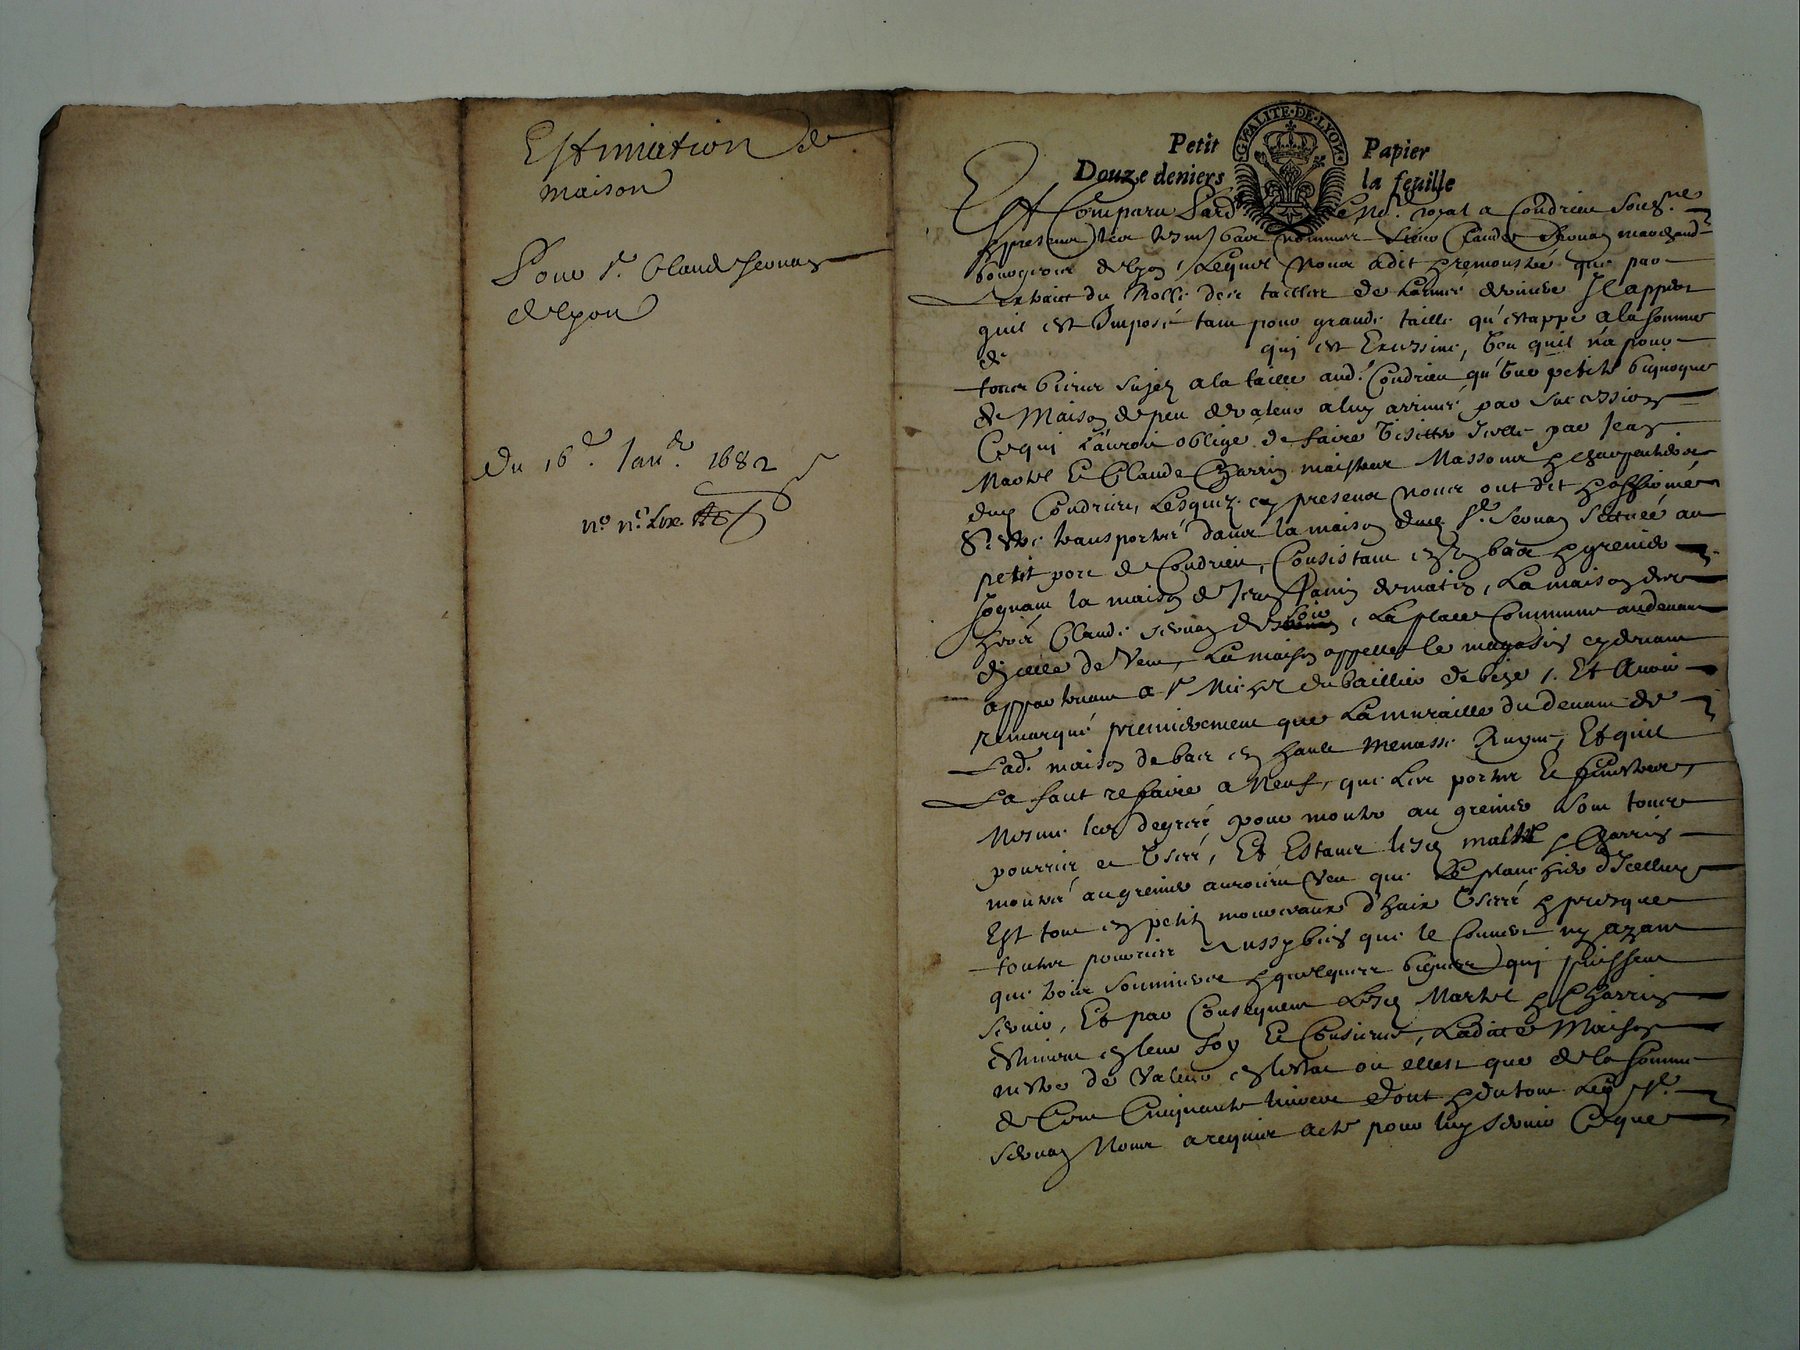 Estimation de
maison
Pour Sr. Claude Seruan
de lyon
du 16e. Janr. 1682
Petit Papier
Douze deniers la feuille
GNALITE·DE·LYON
Est Comparu Pard royal a Condrieu Soubz.ne
presence bas nommes Sieur Claude Seruan marchand
bourgeois de lyon, Lequel Nous a dit & remonstré que par
Lextraict du Rolle des tailles de Lannee derniere Il appert
quil est Imposé tant pour grande taille qu'estappe a la somme
de qui est Excessiue, veu quil n'a pour
tous biens sujez a la taille aud. Condrieu qu'vne petite bignoque
de Maison de peu de valeur a luy arriuée par succession
Ce qui l'auroit obligé de faire visitter Icelle par Jean
Martel et Claude Charrin maistres Massons & charpentiers
dud Condrieu, Lesquelz cy presens Nous ont dit & affirmé
s'estre transportés dans la maison dud Sr. Seruan scittuée au
petit port de Condrieu, Consistant en vn bas & grenier
Jognant la maison de Jean de matin, La maison des
hoirs Claude seruan de soir, La place Commune au deuant
dicelle de Vent, La maison appellée le magasin cy deuant
appartenant a Sr Michel dubaillier de bize /. Et Auoir
remarqué premierement que La muraille du deuant de
Lad. maison de bas en hault menasse Ruyne, Et quil
La faut refaire a Neuf, que Les portes Et fenestres,
Mesme les degrés pour monter au grenier sont tous
pourris et vsés, Et Estant lesd Martel & Charrin
montés au grenier auroient Veu que Le plancher d'Icelluy
Est tout en petits morceaux d'haix vsés & presque
toutes pourries Aussy bien que le Couuert ny ayant
que trois soumieres & quelques bignes qui puissent
seruir, Et par Consequent Lesd Martel & Charrin
Estiment en leur foy Et Consience, Laditte Maison
n'estre de Valeur en lestat ou ellest que de la somme
de Cent Cinquante liures Dont & du tout Led Sr.
Seruan Nous a requis acte pour luy seruir Ce que